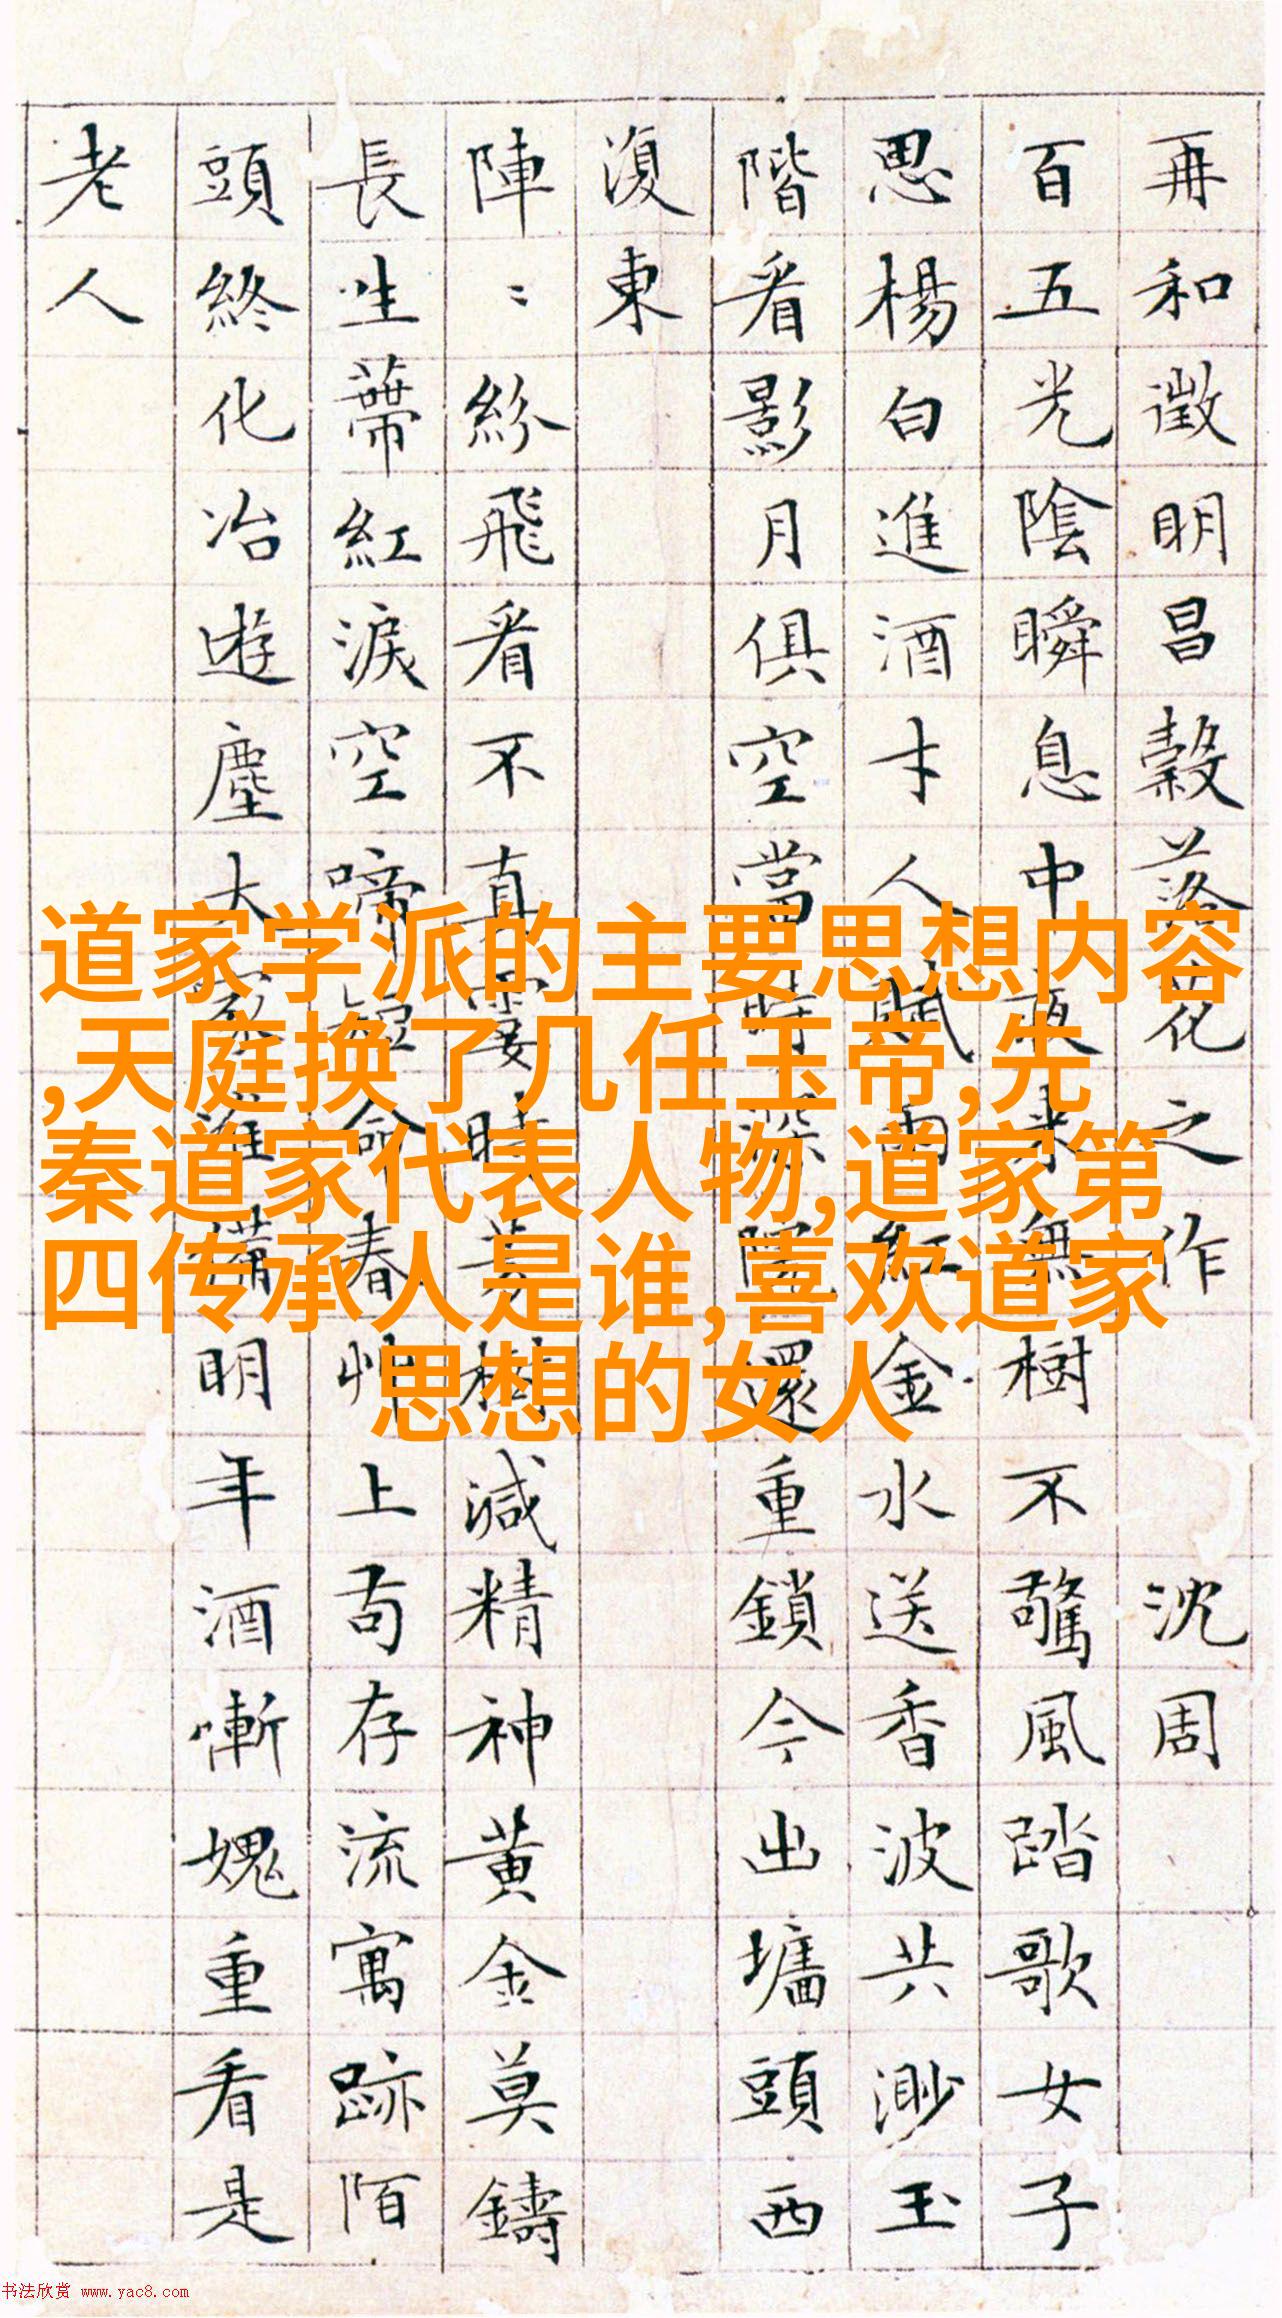 再和徵明昌穀落花之作 沈周
百五光陰瞬息中夜来無樹不驚風踏歌女子
思楊白進酒才人賦雨紅金水送香波共渺玉
階看影月俱空當時深院還重鎖今出墻頭西
復東
陣〻紛飛看不真霎時芳樹減精神黄金莫鑄
長生蔕紅淚空啼短命春艸上苟存流寓跡陌
頭終化冶遊塵大家準備明年酒慚愧重看是
老人
道家学派的主要思想内容
,天庭换了几任玉帝,先
秦道家代表人物,道家第
四传承人是谁,喜欢道家
思想的女人
书法欣赏 www.yac8.com